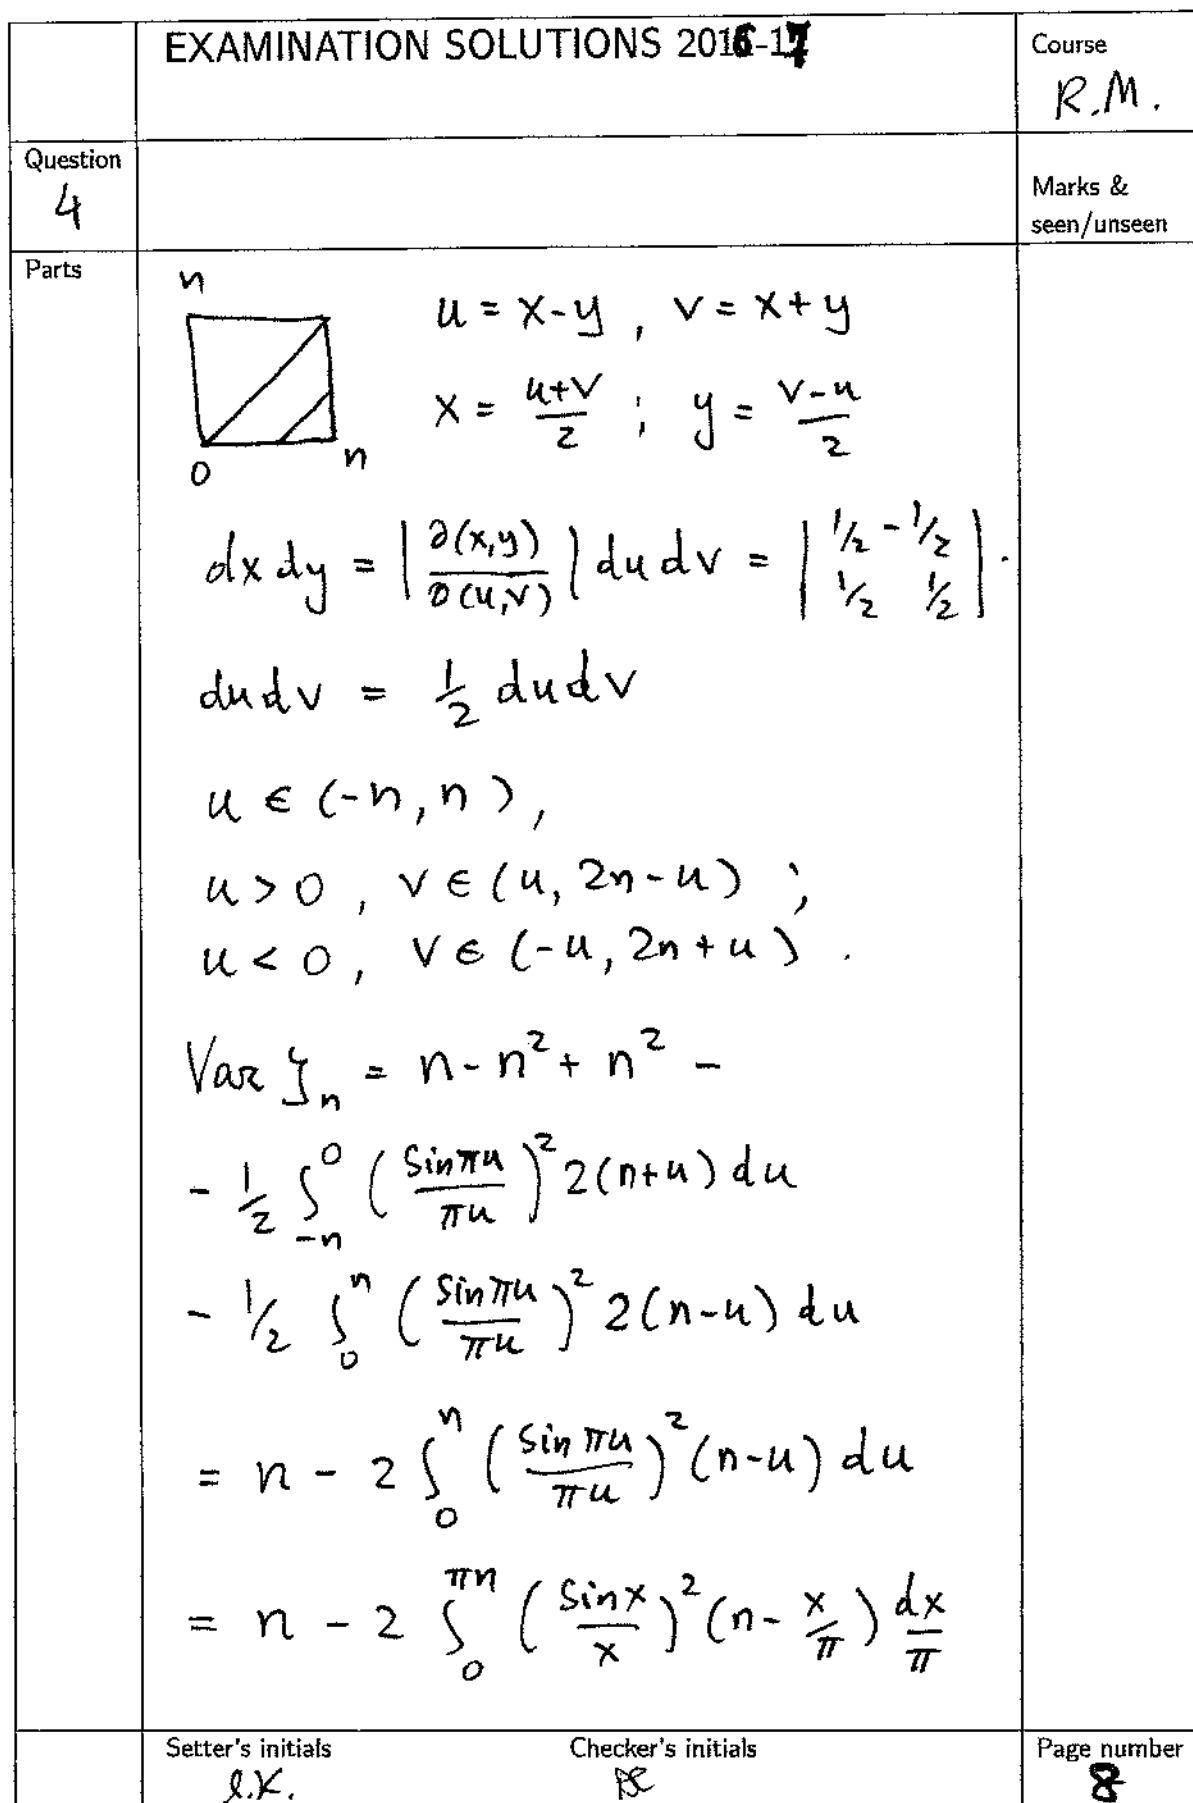 EXAMINATION SOLUTIONS 2016-17
Course
R.M.
Question
4
Marks &
seen/unseen
Parts
n
0
n
u = x-y , v = x+y
x = (u+v)/2 ; y = (v-u)/2
dx dy = |∂(x,y)/∂(u,v)| du dv = |1/2 -1/2 ; 1/2 1/2| ·
du dv = 1/2 du dv
u ∈ (-n, n ) ,
u > 0 , v ∈ (u, 2n-u) ;
u < 0 , v ∈ (-u, 2n+u) .
Var ζ_n = n - n² + n² -
- 1/2 ∫_{-n}^{0} (sin πu / πu)² 2(n+u) du
- 1/2 ∫_0^n (sin πu / πu)² 2(n-u) du
= n - 2 ∫_0^n (sin πu / πu)² (n-u) du
= n - 2 ∫_0^{πn} (sin x / x)² (n - x/π) dx/π
Setter's initials
Checker's initials
Page number
8